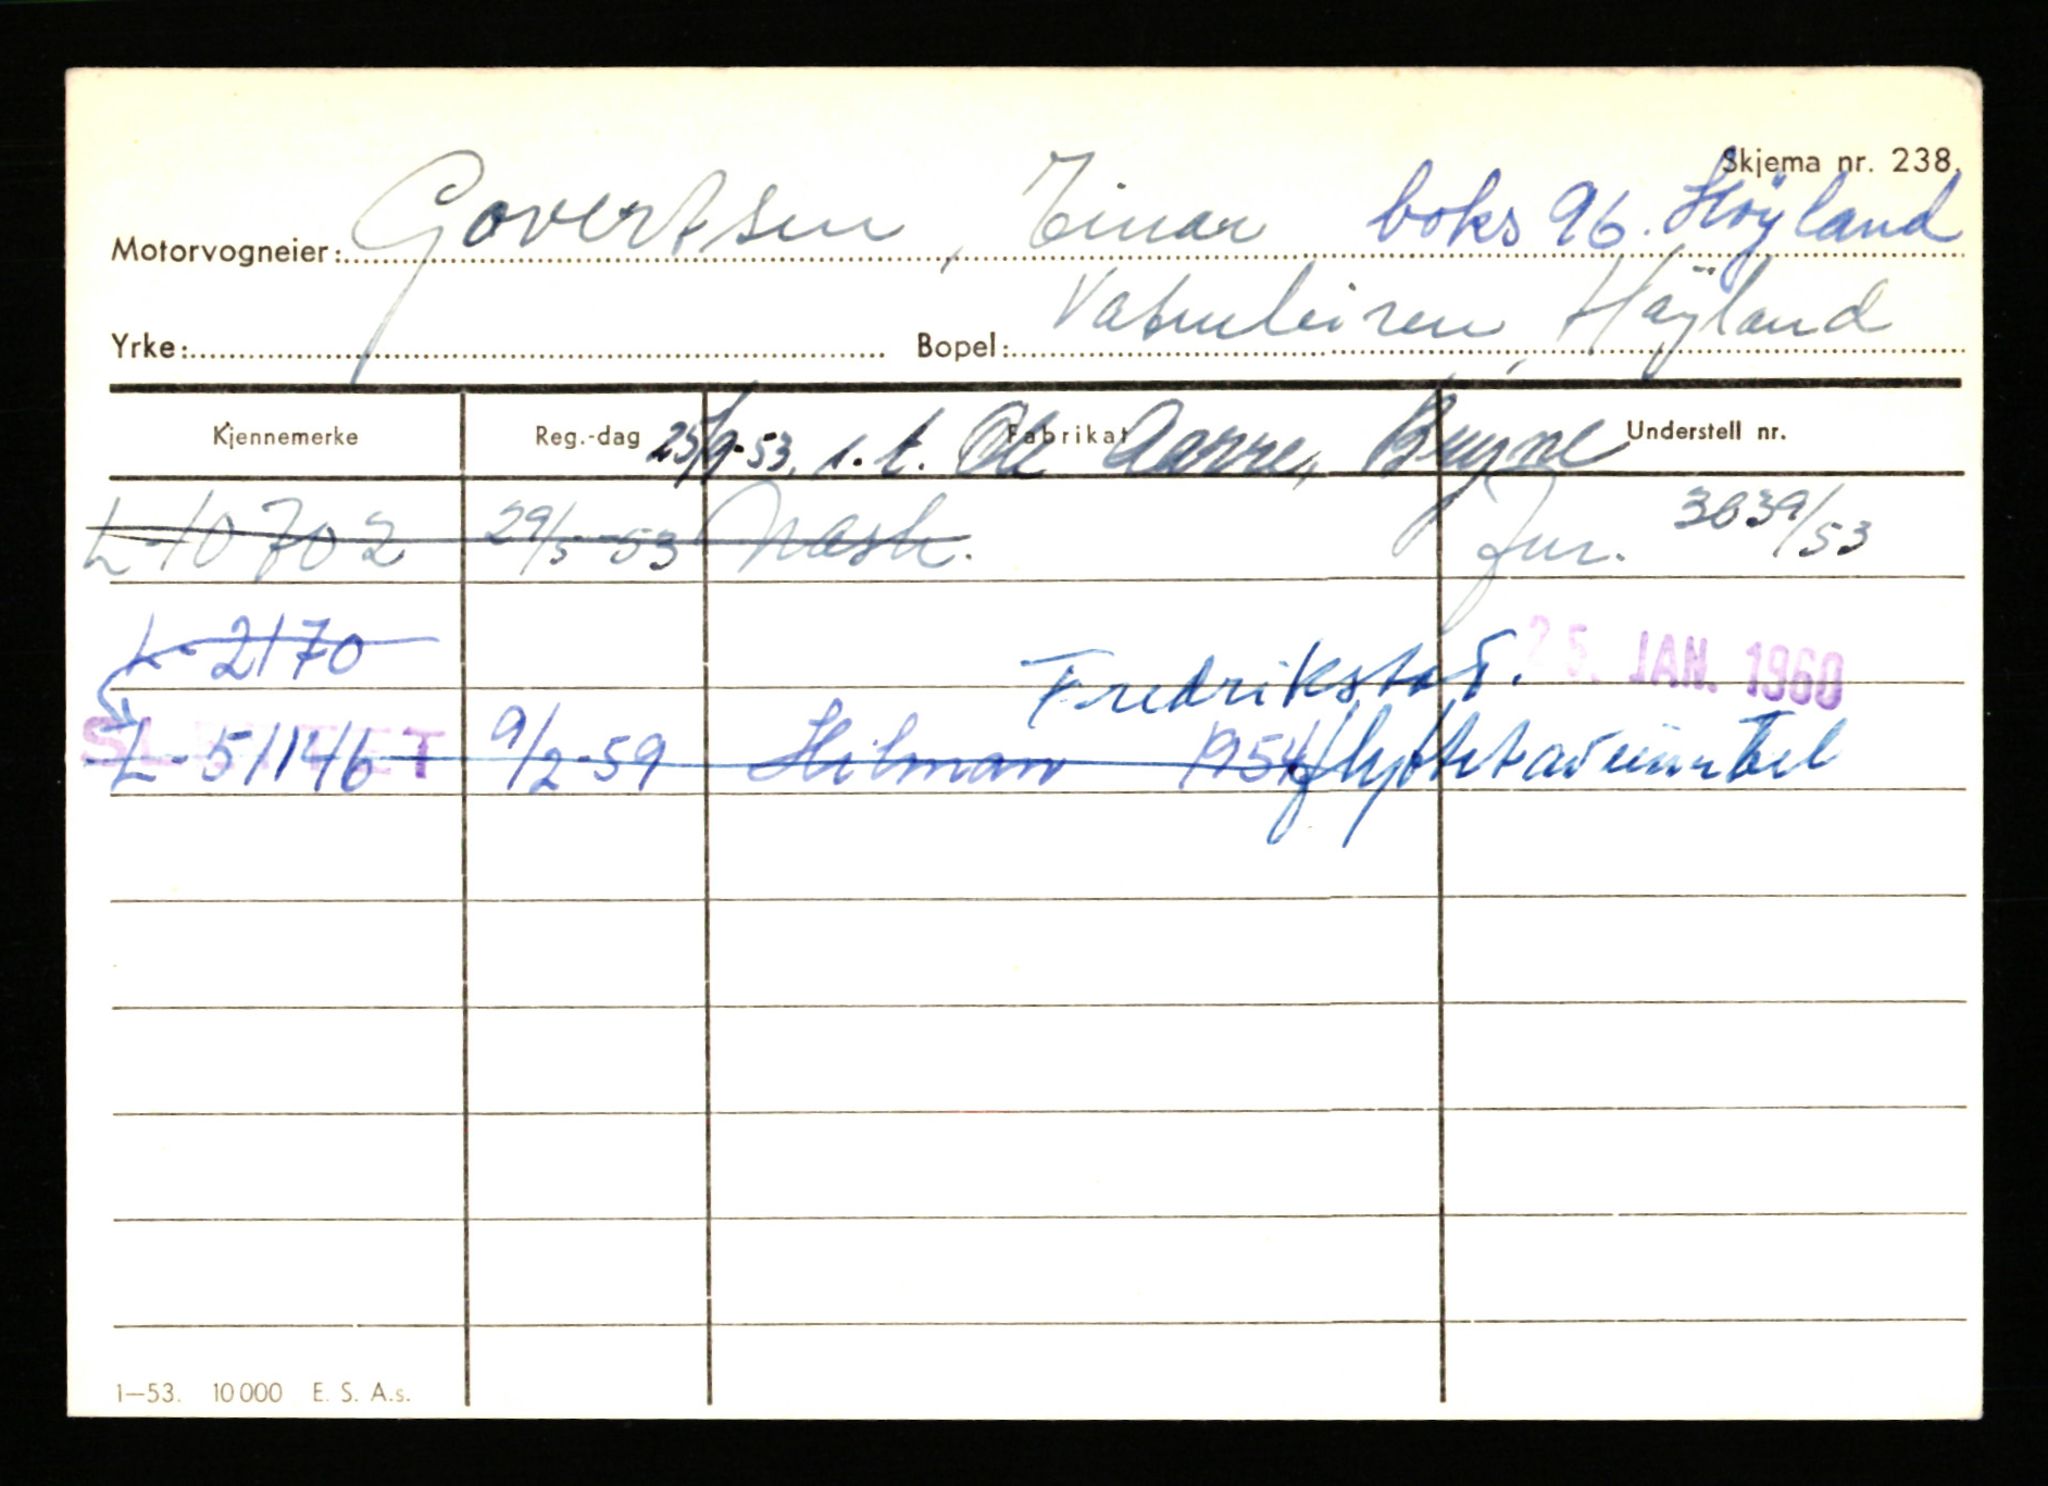 Skjema nr. 238.
Motorvogneier: Govertsen, Einar boks 96. Høyland
Yrke: Bopel: Vatneleiren, Høyland
Kjennemerke Reg.-dag Fabrikat Understell nr.
25/9-53, s.t. Ole Aarre, Bryne
L-10702 29/5-53 Nash. Jnr. 3639/53
L-2170 Fredrikstad. 25. JAN. 1960
SLETTET
L-51146 9/2-59 Hilman 1954 flyttet
1-53. 10 000 E. S. A.s.